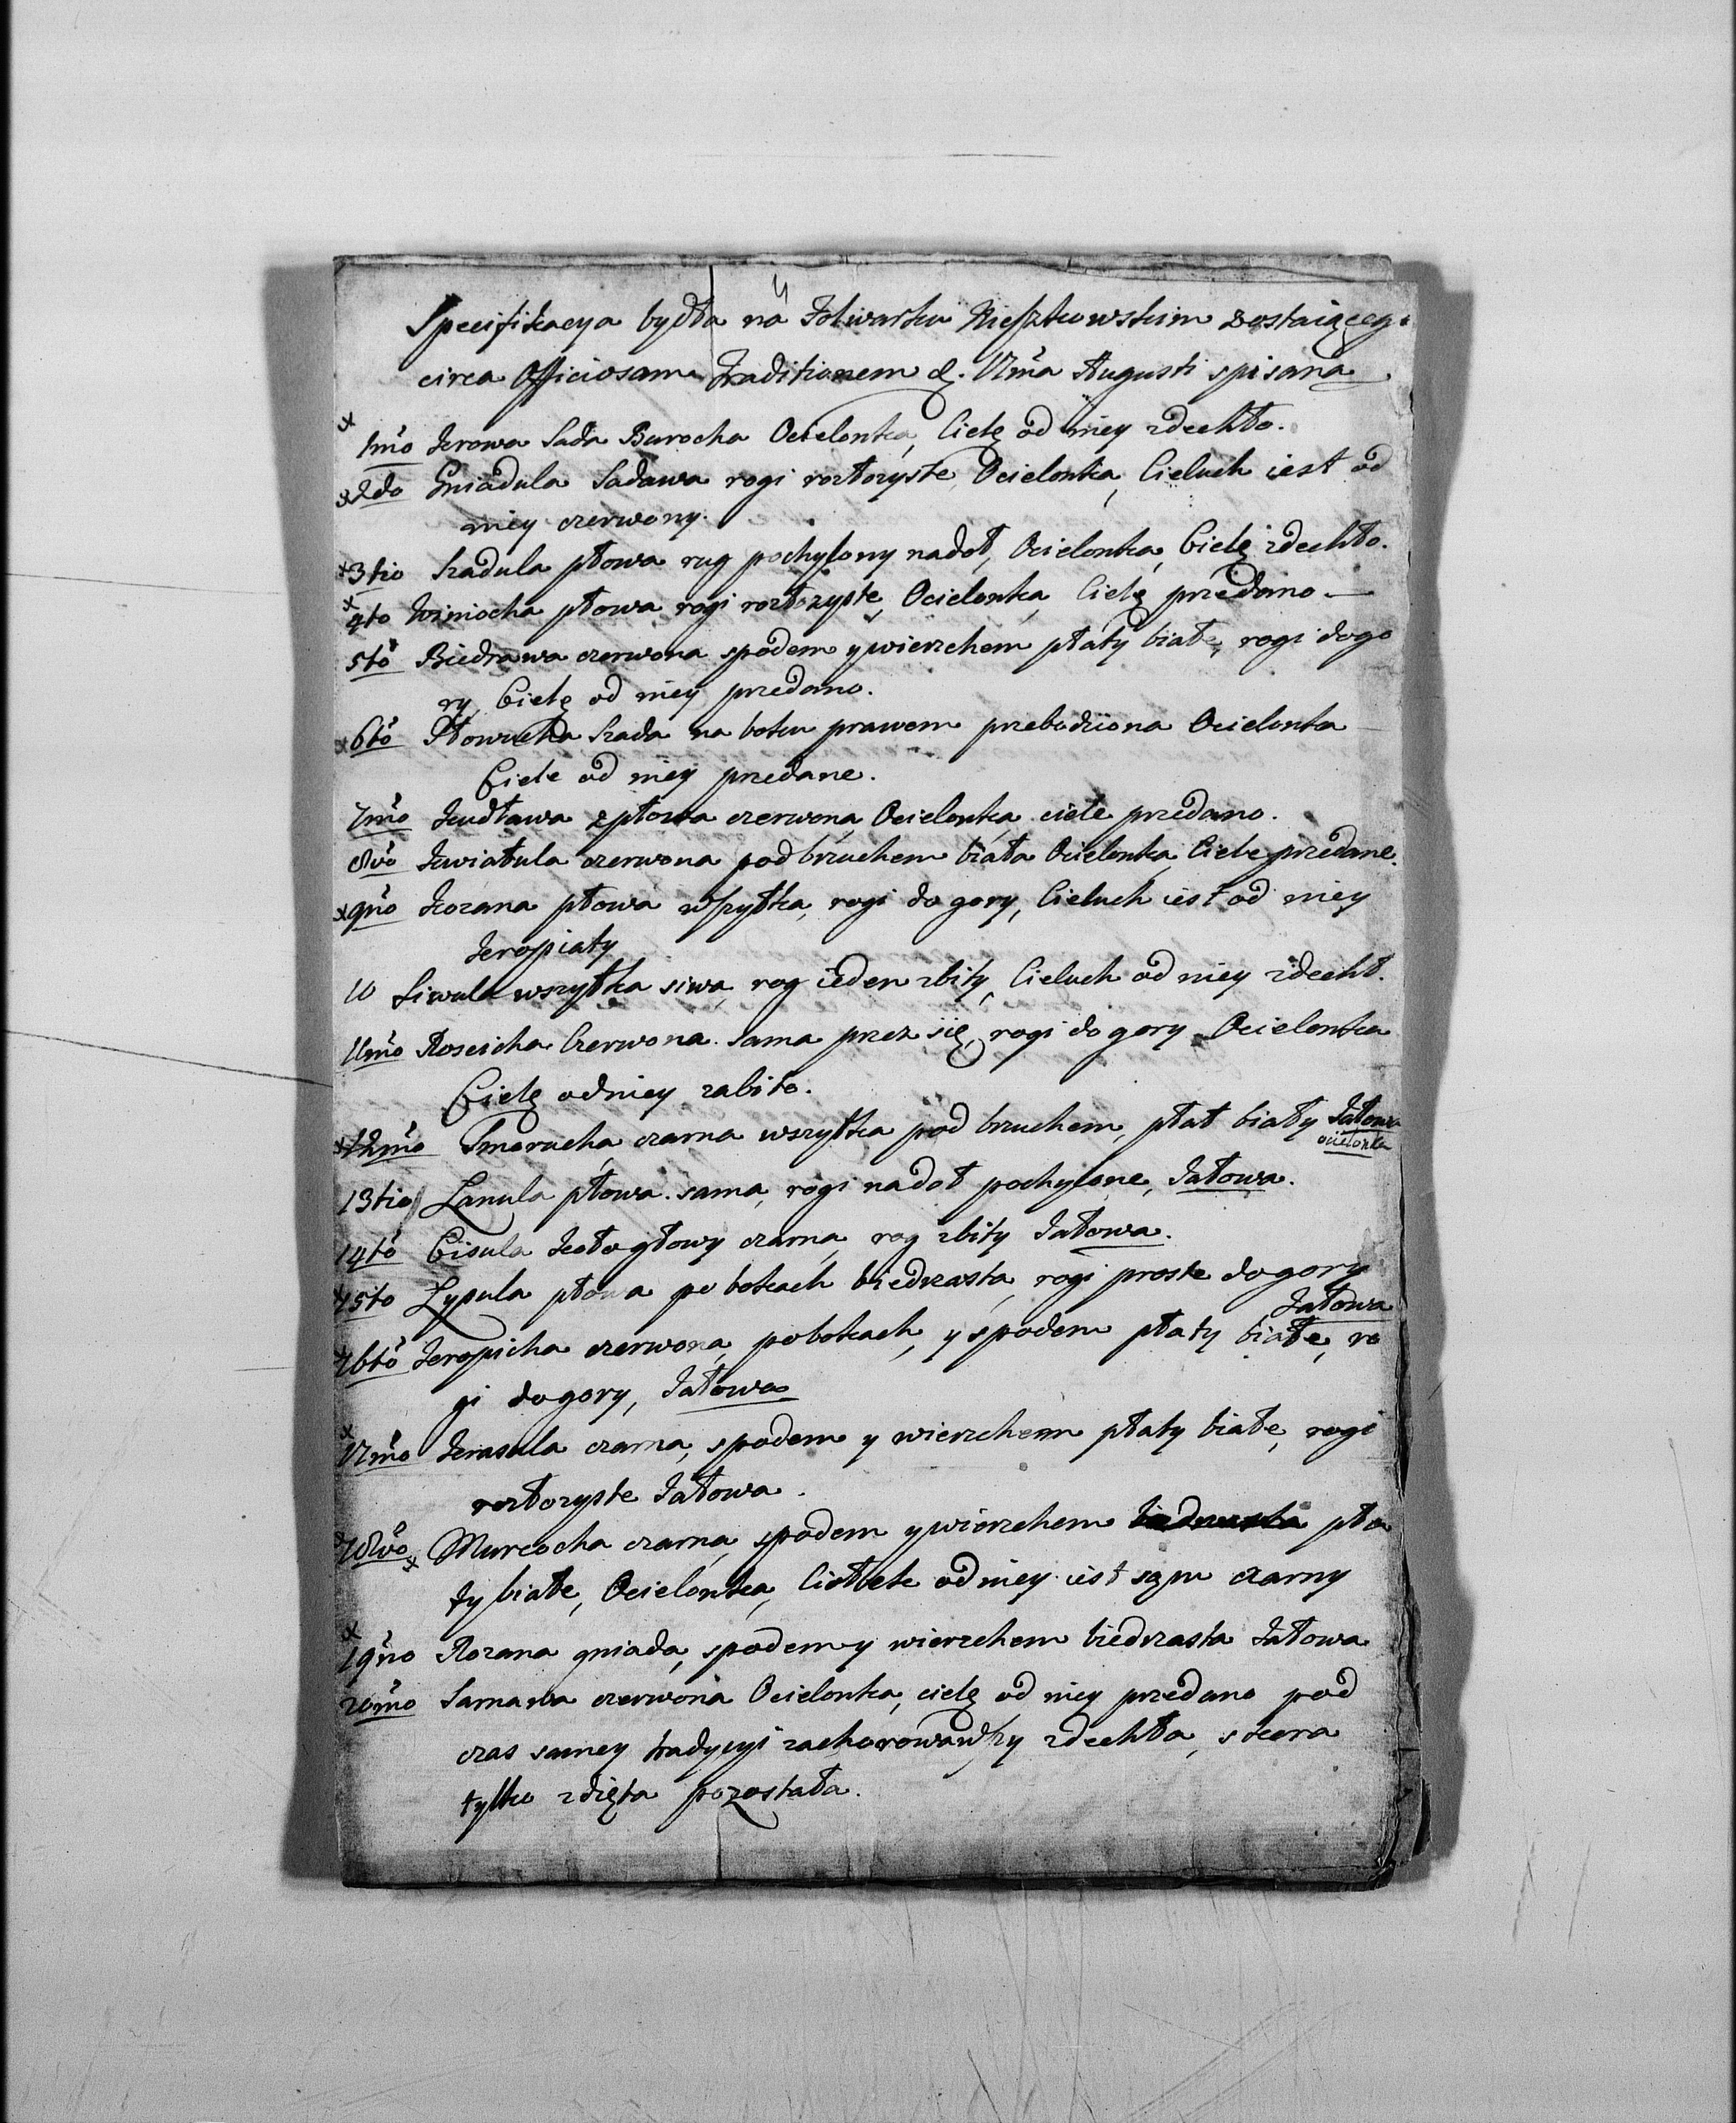 Specifikacya bydła na Folwarku Nieszkowskim zostaiącego
circa Officiosam Traditionem d. 17ma Augusti spisana
1mo Krowa Sada Burocha Ocielonka, Cielę od niey zdechło.
2do Gniadula Sadawa rogi rozłożyste, Ocielonka, Cieluch iest od
niey czerwony.
3tio Szadula płowa rug pochylony nadoł, Ocielonka, Cielę zdechło.
4to Winiocha płowa rogi rozłożyste, Ocielonka, Cielę przedano
5to Biedrawa czerwona spodem y wierzchem płaty białe, rogi dogo
ry, Cielę od niey przedano.
6to Płowucha Szada na boku prawem przebodziona Ocielonka
Ciele od niey przedane.
7mo Kudława płowa czerwona Ocielonka ciele przedano.
8vo Kwiatula czerwona pod brzuchem biała Ocielonka Ciele przedane.
9no Kozana płowa wszytka, rogi do gory, Cieluch iest od niey
kropiaty
10 Siwula wszytka siwa, rog ieden zbity, Cieluch od niey zdechł.
11mo Rosicha Czerwona sama przez się, rogi do gory Ocielonka
Cielę od niey zabito.
12mo Smorucha czarna wszytka pod brzuchem, płat biały Jałowa
ocielonka
13tio Łanula płowa sama, rogi nadoł pochylone, Jałowa.
14to Cisula koło głowy czarna, rog zbity Jałowa.
15to Łysula płowa po bokach biedrzasta, rogi proste dogory
Jałowa
16to Kropicha czerwona, pobokach, y spodem płaty białe, ro
gi dogory, Jałowa
17mo Krasula czarna, spodem y wierzchem płaty białe, rogi
rozłożyste Jałowa.
18vo Murcocha czarna, spodem y wierzchem pła
ty białe, Ocielonka, Ciołek od niey iest sam czarny
19no Rozana gniada, spodem y wierzchem biedrzasta Jałowa
20mo Sarnawa czerwona Ocielonka, cielę od niey przedano pod
czas samey tradycyi zachorowawszy zdechła, skora
tylko zdięta pozostała.